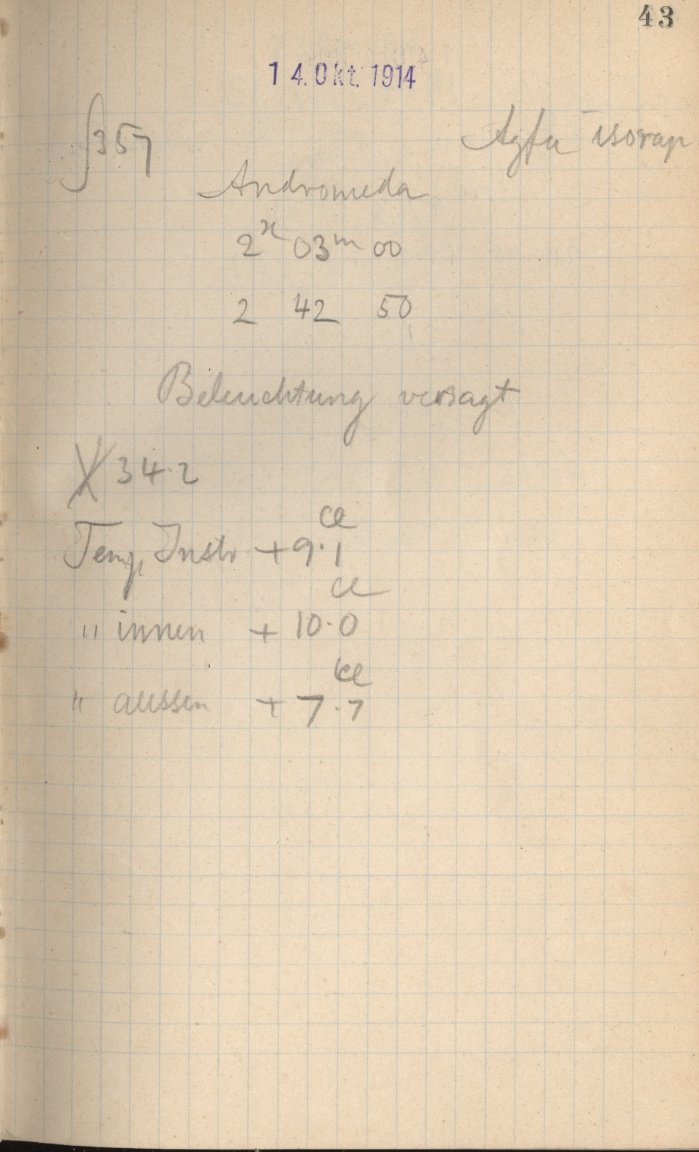 43
14. Okt. 1914
∫357 Agfa isorap
Andromeda
2ʰ 03ᵐ 00
2 42 50
Beleuchtung versagt
34.2
Temp Instr +9.1 Ce
" innen +10.0 Ce
" aussen +7.7 Ce